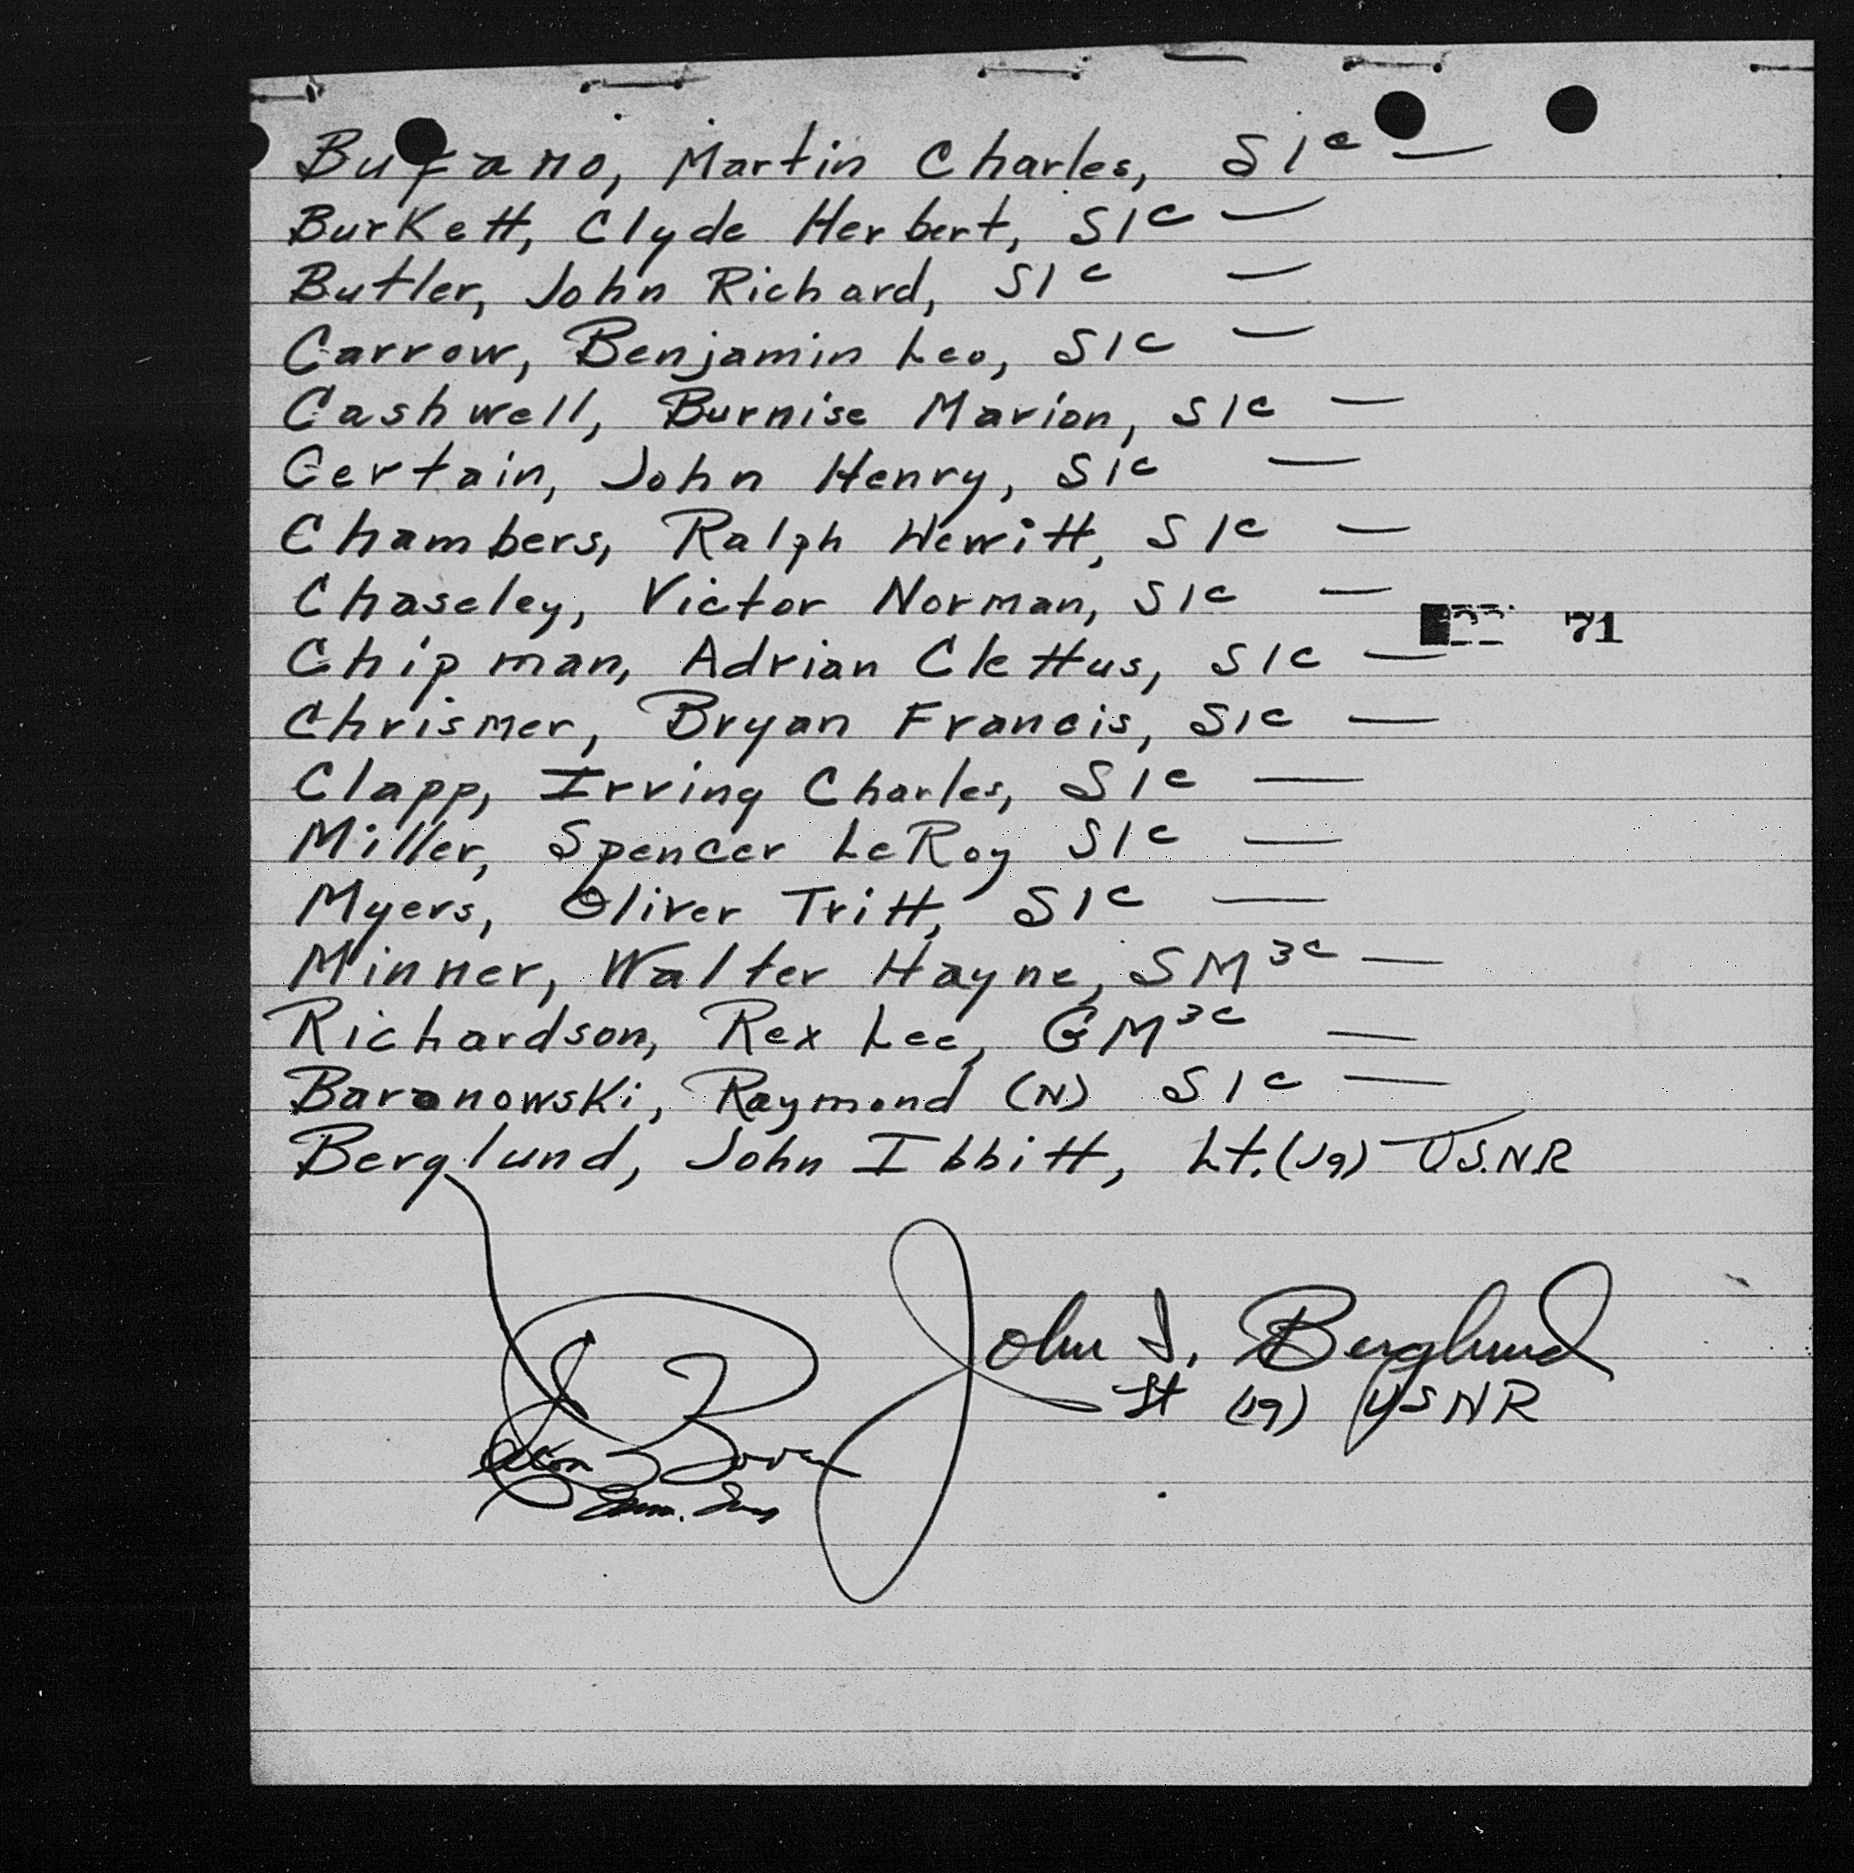 Bufano, Martin Charles, S1c —
Burkett, Clyde Herbert, S1c —
Butler, John Richard, S1c —
Carrow, Benjamin Leo, S1c —
Cashwell, Burnise Marion, S1c —
Certain, John Henry, S1c —
Chambers, Ralph Hewitt, S1c —
Chaseley, Victor Norman, S1c —
71
Chipman, Adrian Clettus, S1c —
Chrismer, Bryan Francis, S1c —
Clapp, Irving Charles, S1c —
Miller, Spencer LeRoy S1c —
Myers, Oliver Tritt, S1c —
Minner, Walter Hayne, SM3c —
Richardson, Rex Lee, GM3c —
Baranowski, Raymond (N) S1c —
Berglund, John Ibbitt, Lt.(Jg) U.S.N.R
John I. Berglund
Lt (Jg) USNR